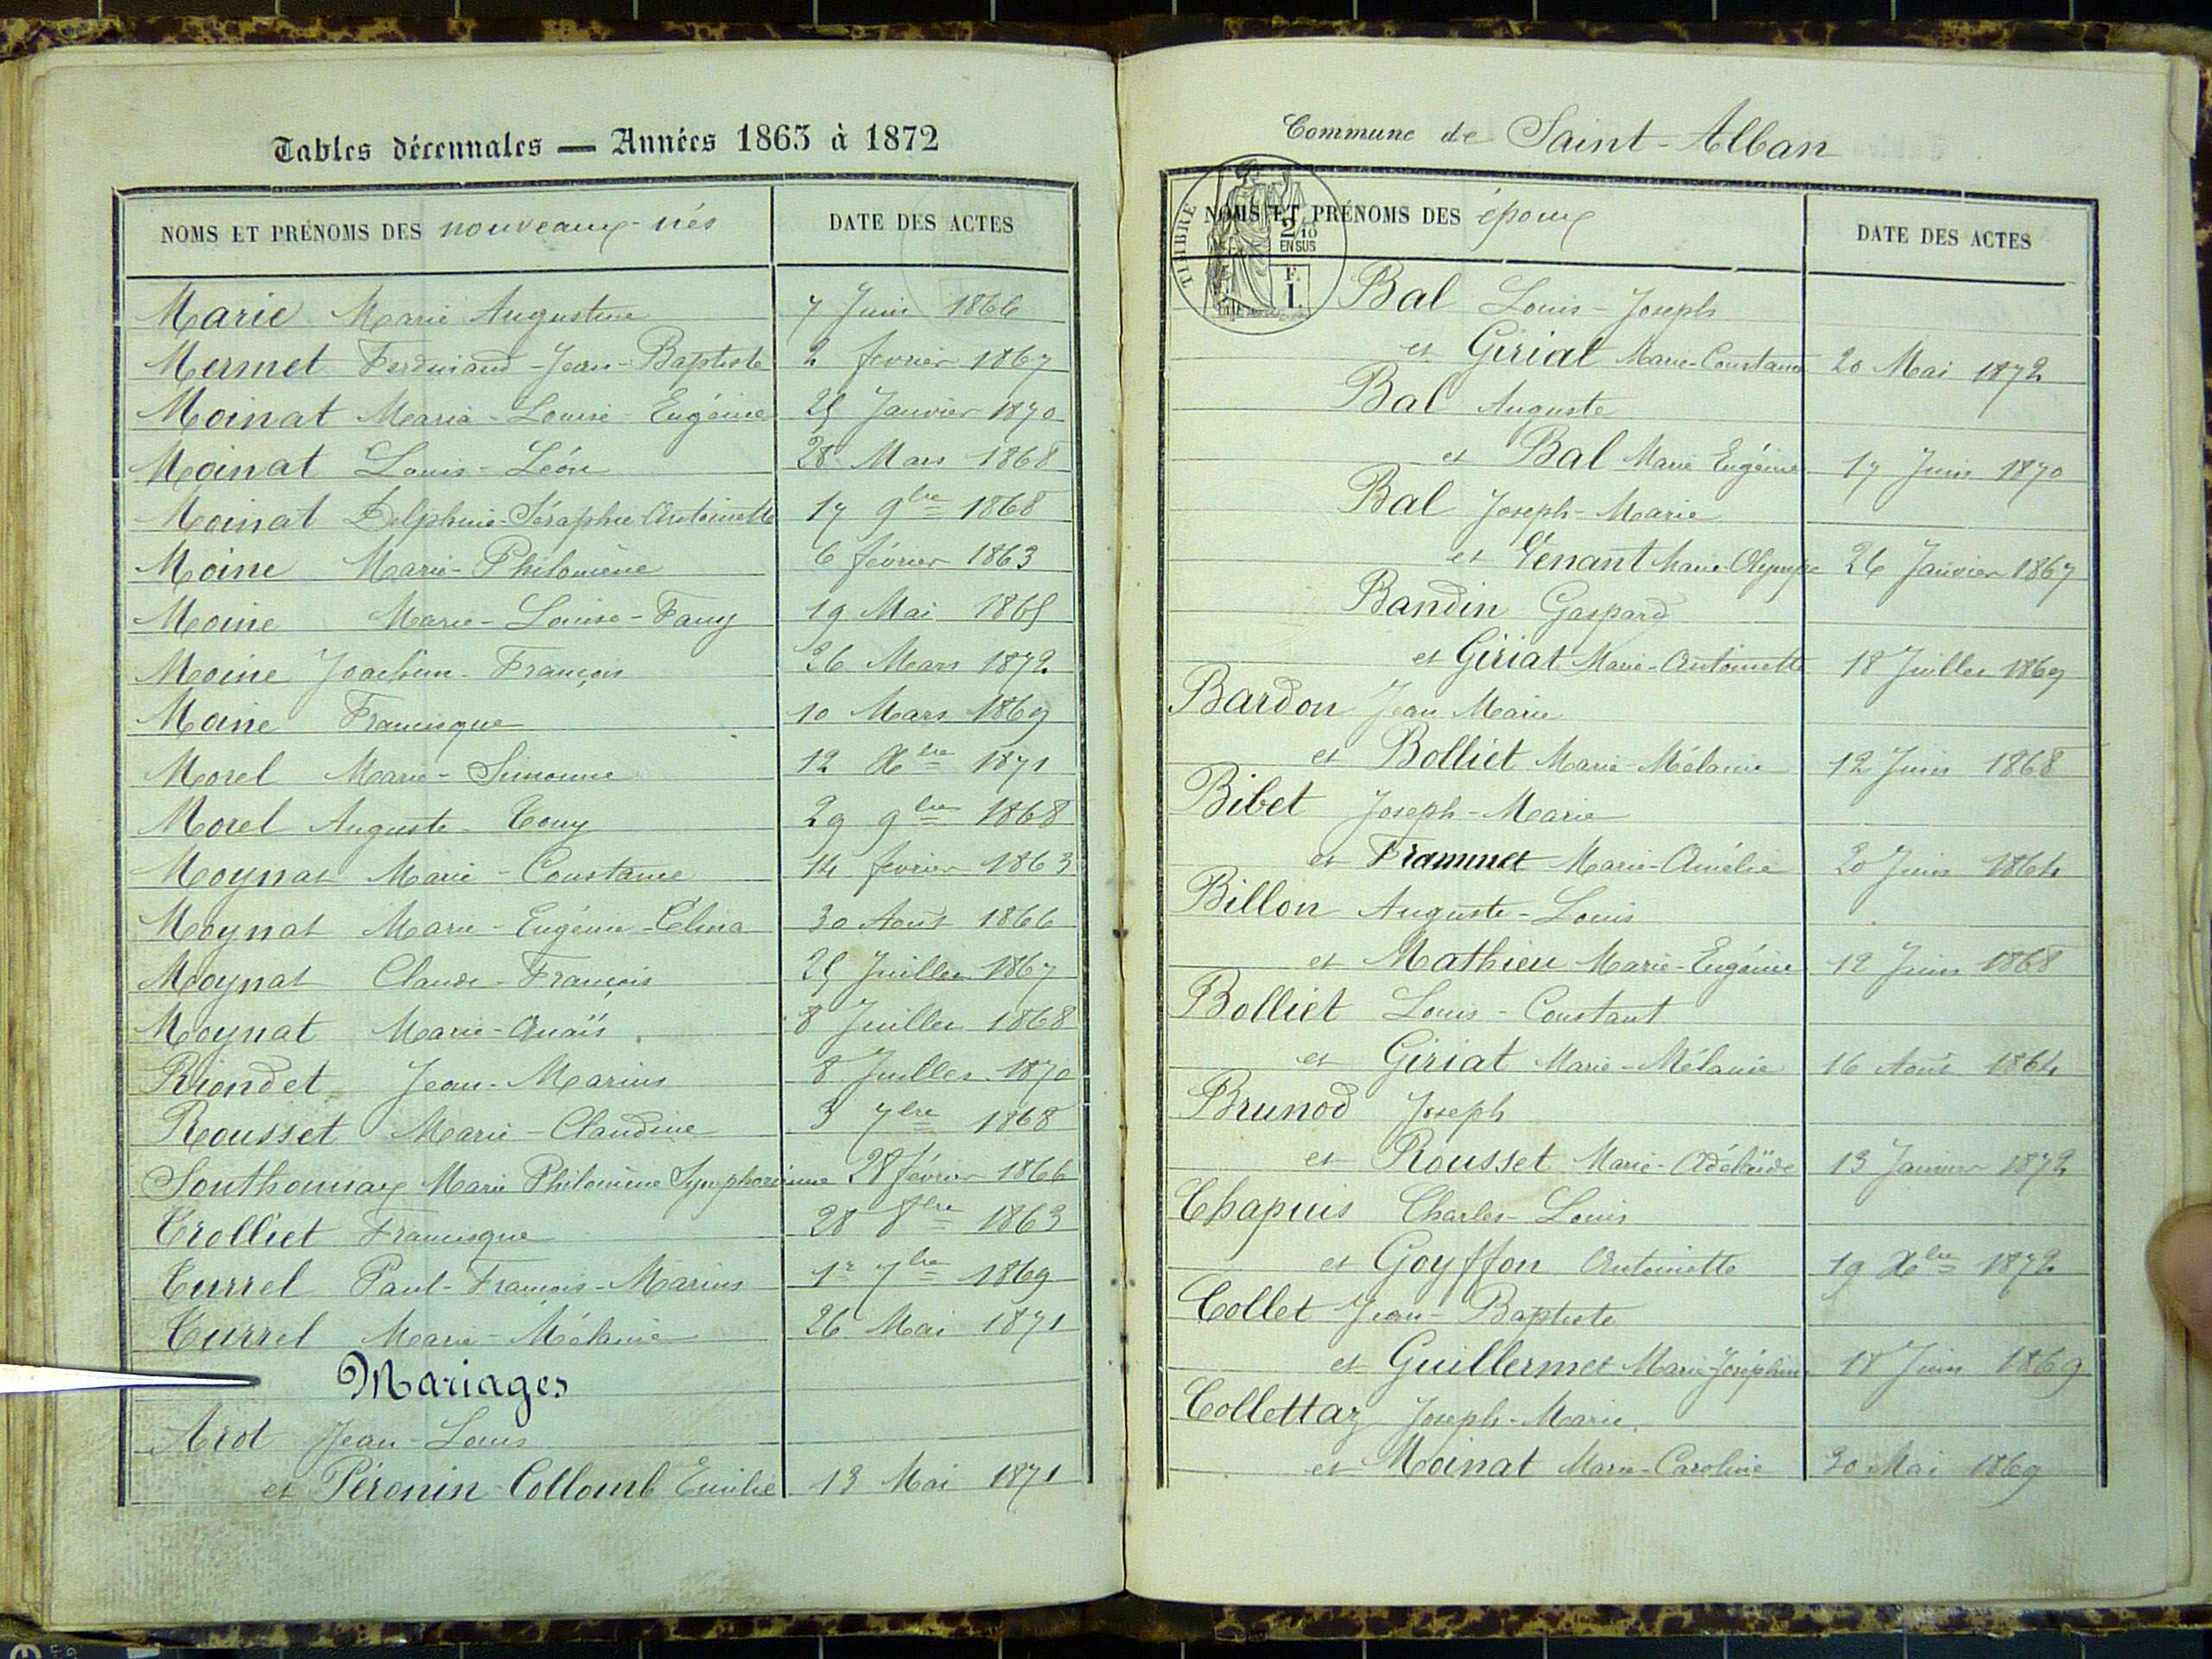 Tables décennales — Années 1863 à 1872
NOMS ET PRÉNOMS DES nouveaux-nés DATE DES ACTES
Marie Marie Augustine 7 Juin 1866
Mermet Ferdinand-Jean-Baptiste 2 février 1867
Moinat Maria-Louise-Eugénie 25 Janvier 1870
Moinat Louis-Léon 28 Mars 1868
Moinat Delphine-Séraphie Antoinette 17 9bre 1868
Moine Marie-Philomène 6 février 1863
Moine Marie-Louise-Fany 19 Mai 1865
Moine Joachim-François 26 Mars 1872
Moine Francisque 10 Mars 1869
Morel Marie-Simonne 12 Xbre 1871
Morel Auguste-Tony 29 9bre 1868
Moynat Marie-Constance 14 février 1863
Moynat Marie-Eugénie-Célina 30 Août 1866
Moynat Claude-François 25 Juillet 1867
Moynat Marie-Anaïs 8 Juillet 1868
Riondet Jean-Marius 8 Juillet 1870
Rousset Marie-Claudine 3 7bre 1868
Southonnax Marie Philomène Symphorienne 28 février 1866
Trolliet Francisque 28 8bre 1863
Turrel Paul-François-Marius 1r 7bre 1869
Turrel Marie-Mélanie 26 Mai 1871
Mariages
Arot Jean-Louis
et Péronin-Collomb Emilie 13 Mai 1871
Commune de Saint-Alban
TIMBRE
2/10
EN SUS
F.
1.
NOMS ET PRÉNOMS DES époux DATE DES ACTES
Bal Louis-Joseph
et Girial Marie-Constance 20 Mai 1872
Bal Auguste
et Bal Marie Eugénie 17 Juin 1870
Bal Joseph-Marie
et Venant Marie-Olympe 26 Janvier 1867
Bandin Gaspard
et Giriat Marie-Antoinette 18 Juillet 1869
Bardon Jean Marie
et Bolliet Marie-Mélanie 12 Juin 1868
Bibet Joseph-Marie
et Trammet Marie-Amélie 20 Juin 1864
Billon Auguste-Louis
et Mathieu Marie-Eugénie 12 Juin 1868
Bolliet Louis-Constant
et Giriat Marie-Mélanie 16 Août 1864
Brunod Joseph
et Rousset Marie-Adélaïde 13 Janvier 1872
Chapuis Charles-Louis
et Goyffon Antoinette 19 Xbre 1872
Collet Jean-Baptiste
et Guillermet Marie-Joséphine 18 Juin 1869
Collettaz Joseph-Marie
et Moinat Marie-Caroline 30 Mai 1869